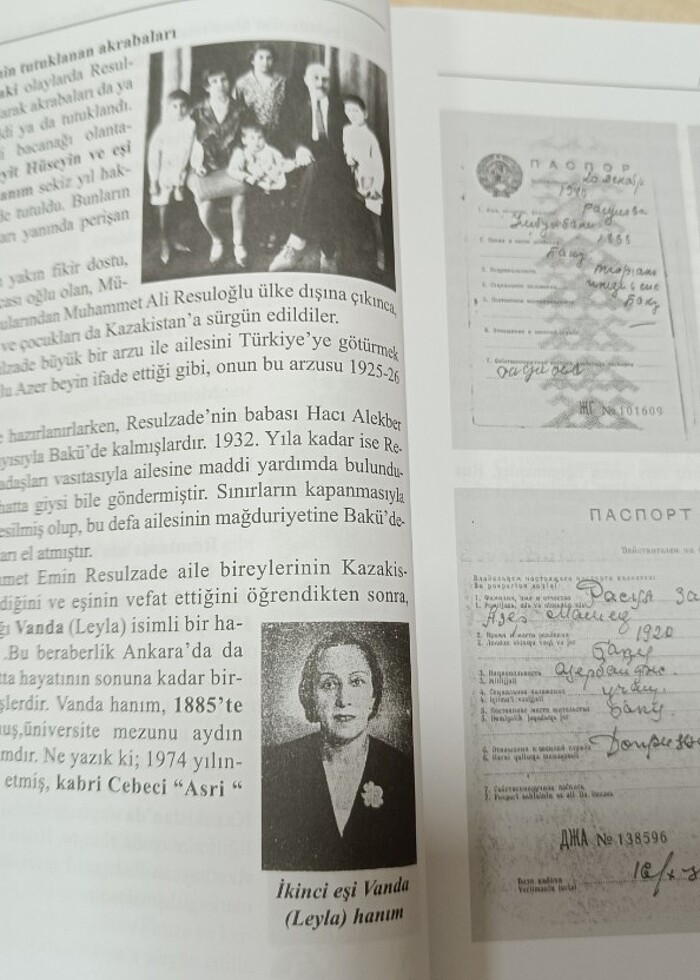 in tutuklanan akrabaları
ki olaylarda Resul-
arak akrabaları da ya
di ya da tutuklandı.
i bacanağı olanta-
yit Hüseyin ve eşi
anım sekiz yıl hak-
de tutuldu. Bunların
arı yanında perişan
yakın fikir dostu,
ası oğlu olan, Mü-
ularından Muhammet Ali Resuloğlu ülke dışına çıkınca,
ve çocukları da Kazakistan’a sürgün edildiler.
lzade büyük bir arzu ile ailesini Türkiye’ye götürmek
lu Azer beyin ifade ettiği gibi, onun bu arzusu 1925-26
hazırlanırlarken, Resulzade’nin babası Hacı Alekber
yısıyla Bakü’de kalmışlardır. 1932. Yıla kadar ise Re-
adaşları vasıtasıyla ailesine maddi yardımda bulundu-
hatta giysi bile göndermiştir. Sınırların kapanmasıyla
esilmiş olup, bu defa ailesinin mağduriyetine Bakü’de-
arı el atmıştır.
met Emin Resulzade aile bireylerinin Kazakis-
diğini ve eşinin vefat ettiğini öğrendikten sonra,
ğı Vanda (Leyla) isimli bir ha-
.Bu beraberlik Ankara’da da
tta hayatının sonuna kadar bir-
şlerdir. Vanda hanım, 1885’te
uş,üniversite mezunu aydın
mdır. Ne yazık ki; 1974 yılın-
etmiş, kabri Cebeci “Asri “
İkinci eşi Vanda
(Leyla) hanım
ПАСПОР
20 декабр
Расулова
1888
Баку
Баку
ЖГ № 101609
ПАСПОРТ
Действителен на
1. Фамилия, имя и отчество Расул За
1920
Баку
3. Национальность азербайдж.
учащ.
Баку
ДЖА № 138596